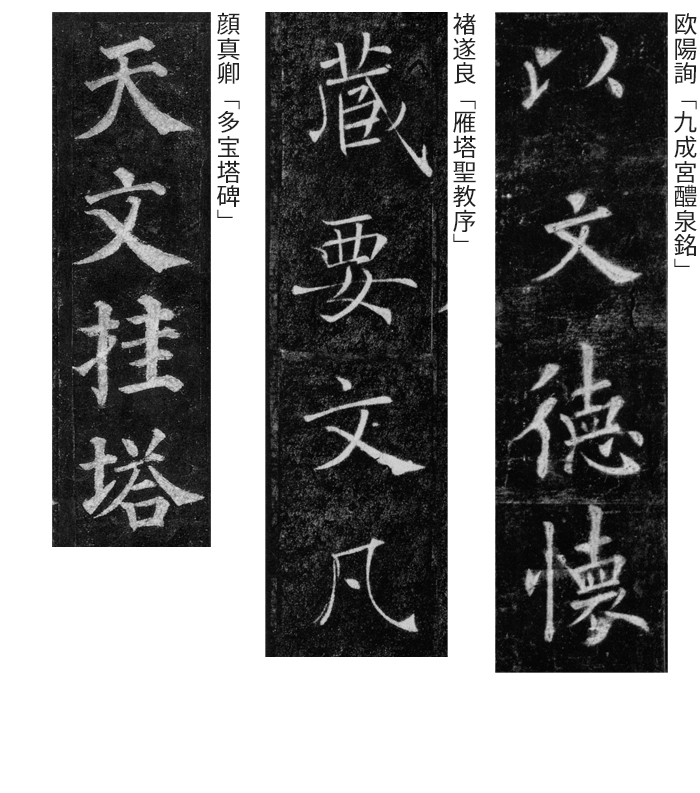 欧陽詢「九成宮醴泉銘」
以文徳懐
褚遂良「雁塔聖教序」
蔵要文凡
顔真卿「多宝塔碑」
天文挂塔